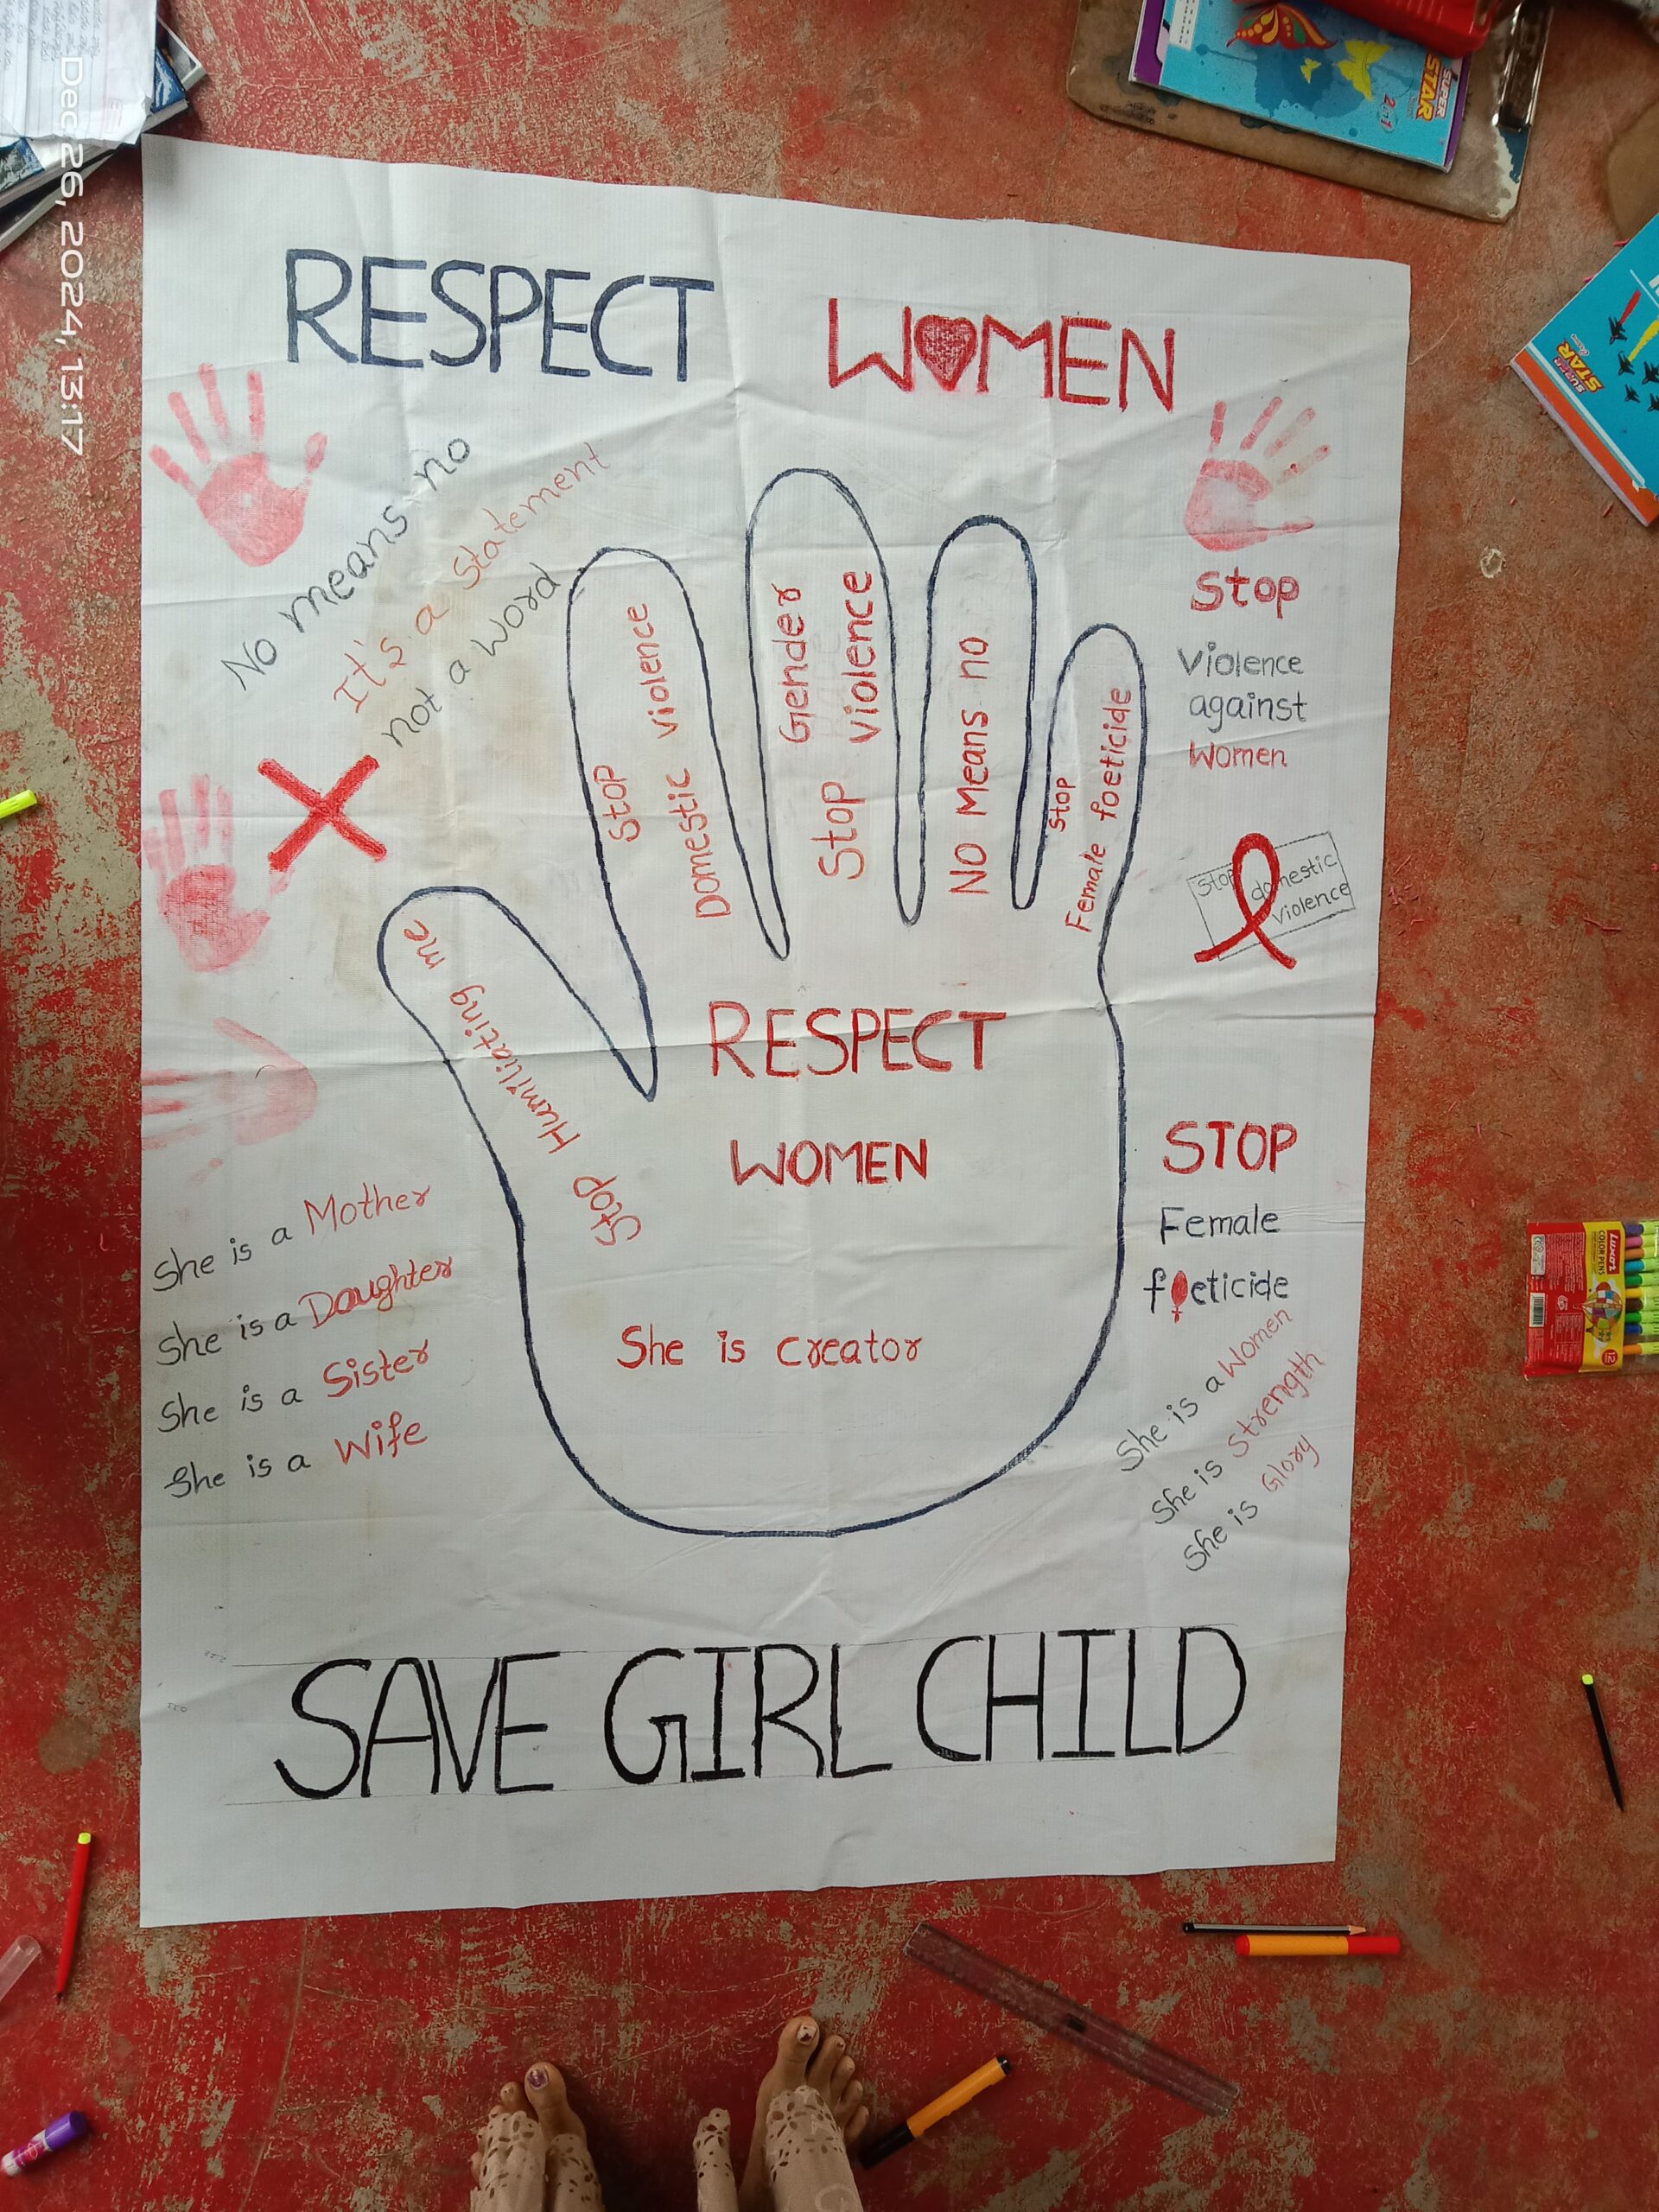 Dec 26, 2024, 13:17
SUPER
STAR
2 in 1
SUPER
STAR
RESPECT WOMEN
No means no
It's a Statement
not a word
Stop
Domestic violence
Stop Gender
violence
No Means no
Stop
Female foeticide
Stop Humiliating me
Stop
Violence
against
Women
Stop domestic
violence
RESPECT
WOMEN
She is creator
She is a Mother
She is a Daughter
She is a Sister
She is a Wife
STOP
Female
foeticide
She is a Women
She is Strength
She is Glory
SAVE GIRL CHILD
Luxor
COLOR PENS
12